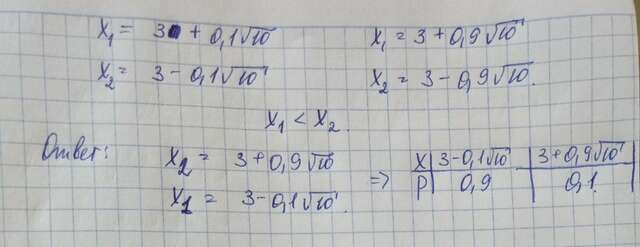 X₁ = 3 + 0,1√10 X₁ = 3 + 0,9√10
X₂ = 3 - 0,1√10 X₂ = 3 - 0,9√10.
X₁ < X₂.
Ответ: X₂ = 3 + 0,9√10 => X | 3 - 0,1√10 | 3 + 0,9√10
X₁ = 3 - 0,1√10. P | 0,9 | 0,1.